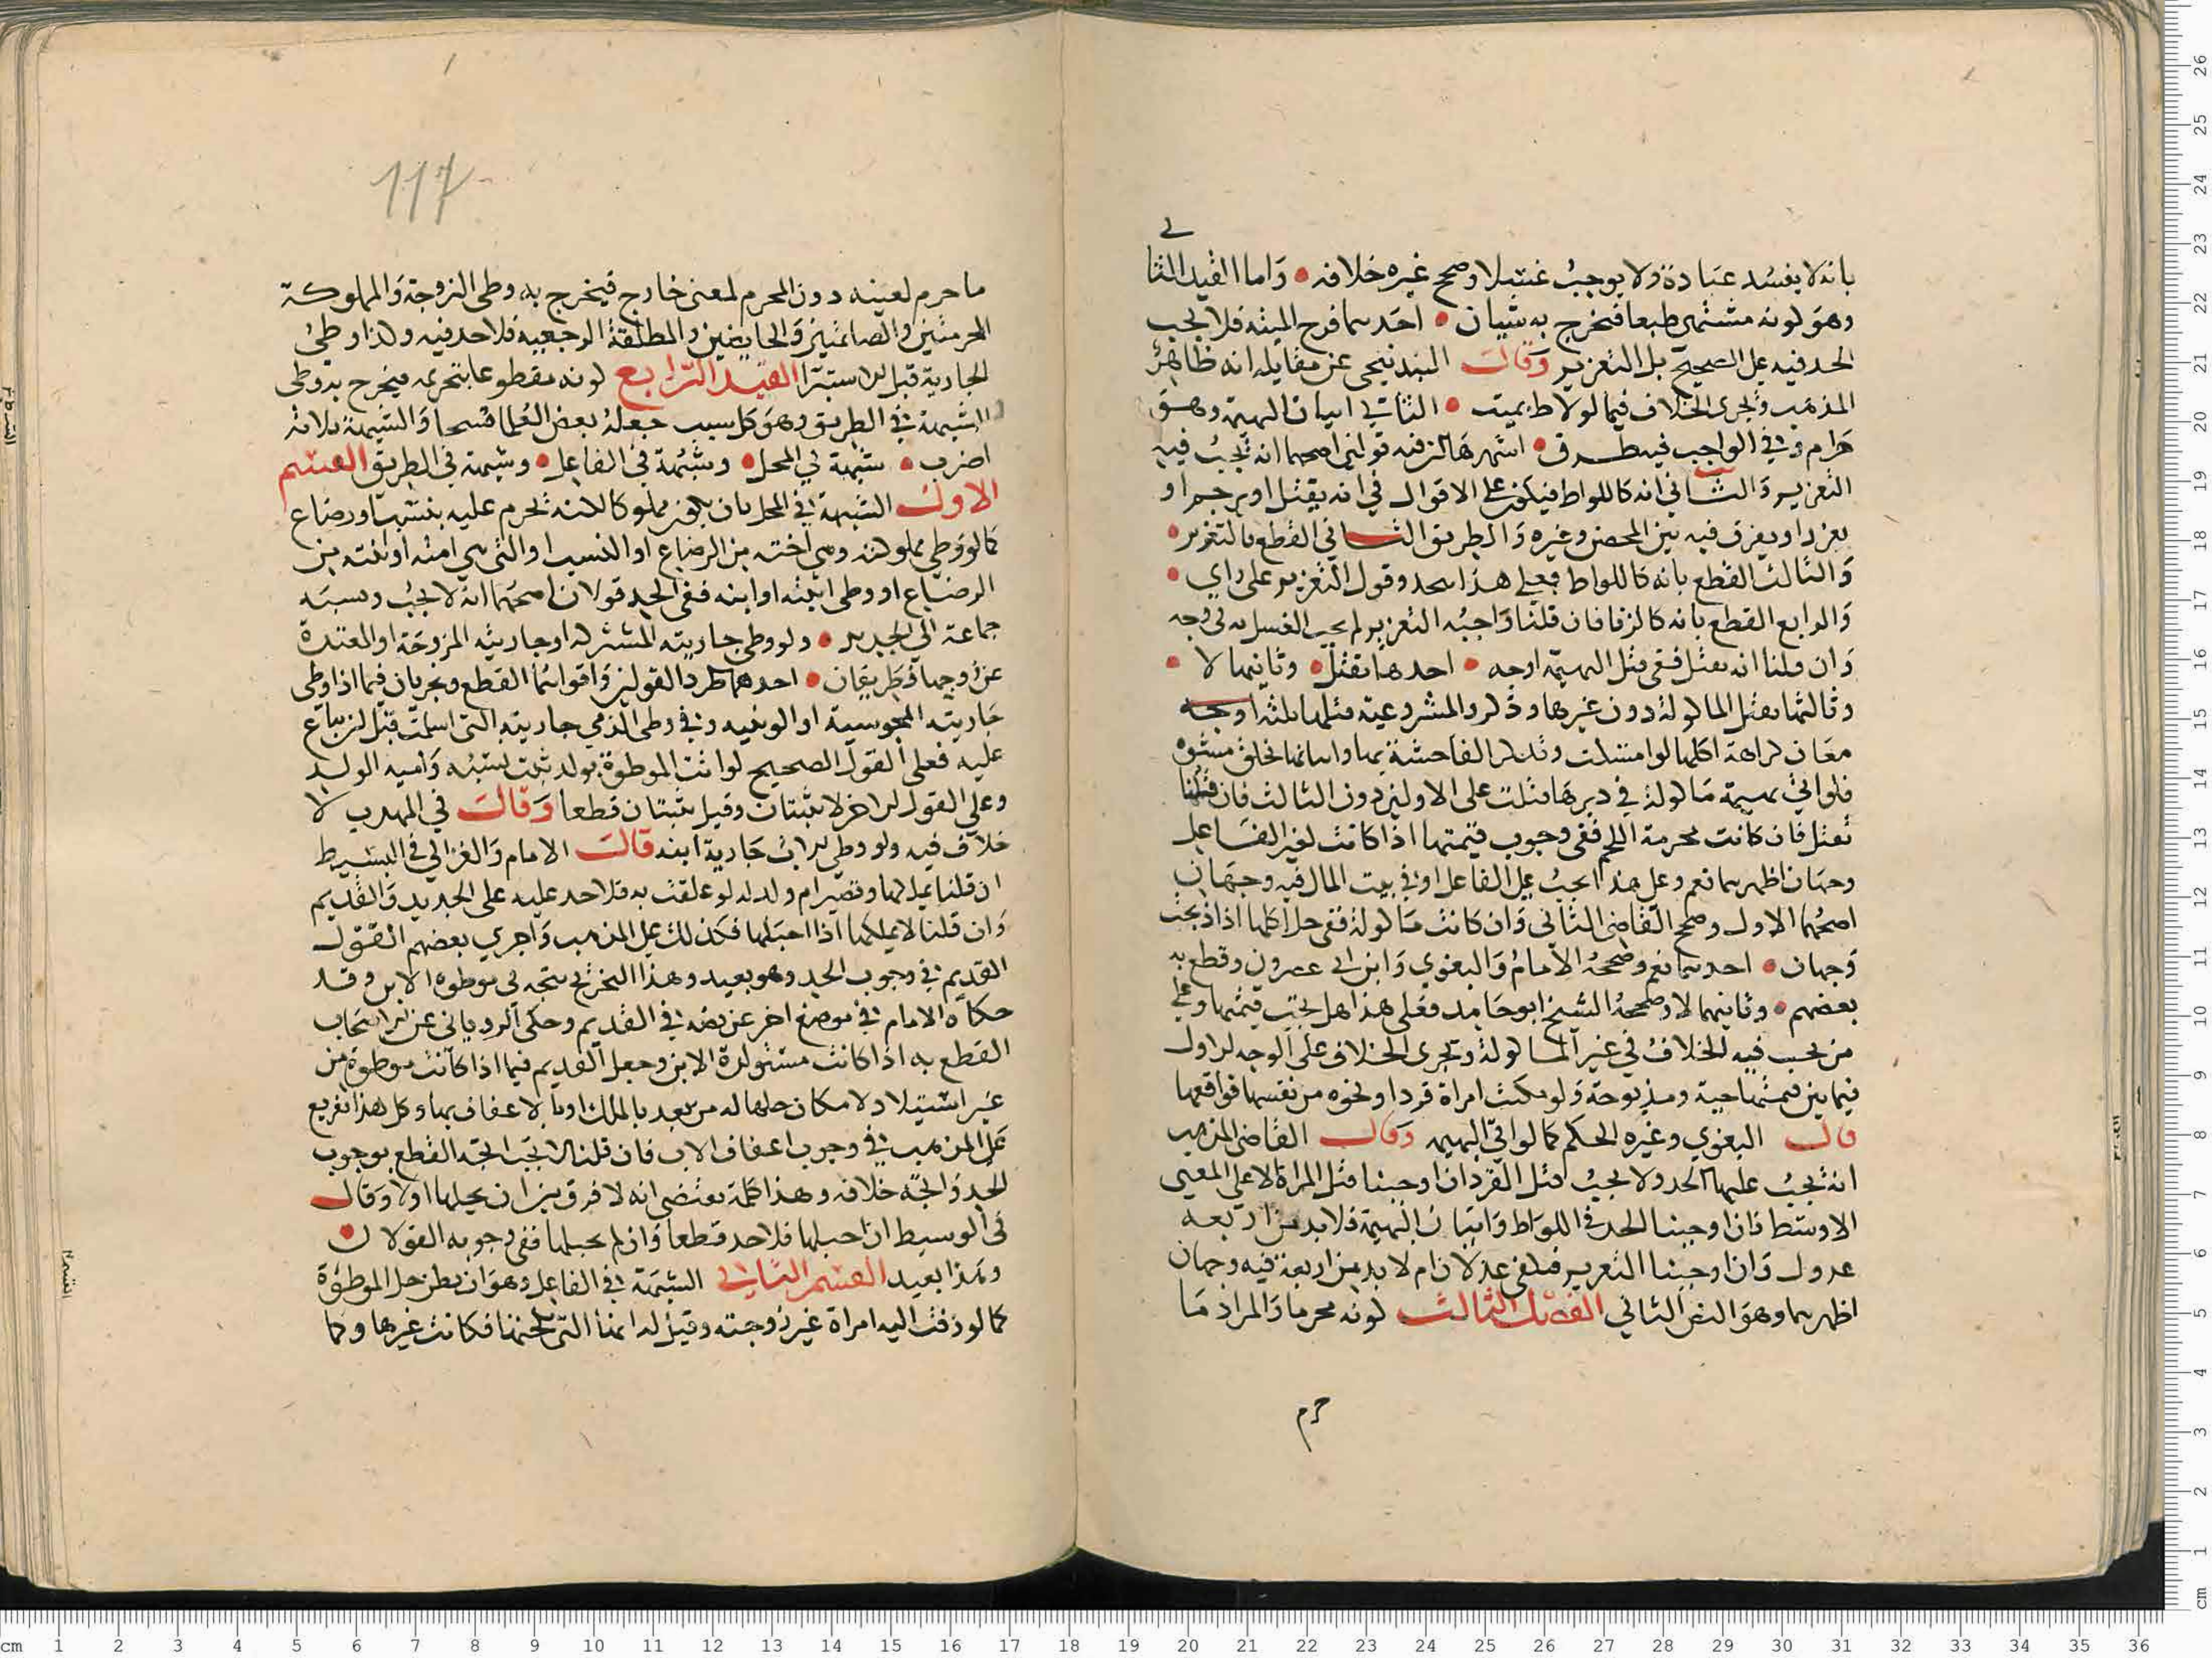 بانه لا يفسد عبادة ولا يوجب غسلا وصح غيره خلافه • واما القيد الثا
لي
وهو لونه مشتهى طبعا فتخرج به شيان • احدهما فرج الميتة فلا يجب
الحد فيه على الصحيح بل التعزير وقال البندنيجي عن مقابله انه ظاهر
المذهب وتجرى الخلاف فيما لولاط بميت • الثاني اتيان البهيمة وهو
حرام وفي الواجب فيه طرق • اشهرها لزفيه قولين اصحهما انه تجب فيه
التعزير والثاني انه كاللواط فيكون على الاقوال في انه يقتل او يرجم او
يعزر او يفرق فيه بين المحصن وغيره والطريق الثاني القطع بالتعزير •
والثالث القطع بانه كاللواط فعلى هذا يحد وقول التعزير على راي •
والرابع القطع بانه كالزنا فان قلنا واجبه التعزير لم يجب الغسل به لى وجه
وان قلنا انه يقتل ففي قتل البهيمة اوجه • احدها تقتل • وثانيها لا •
وثالثها تقتل الماكولة دون غيرها وذكر والمشروعية قتلها ثلثة اوجه
معان كراهة اكلها لو امتثلت وتذكر الفاحشة بها واتيانها بخلق مشوه
فلو اتى بهيمة ماكولة في دبرها قتلت على الاولين دون الثالث فان قلنا
تقتل فان كانت محرمة اللحم ففي وجوب قيمتها اذا كانت لغير الفاعل
وجهان اظهرهما نعم وعلى هذا يجب على الفاعل او في بيت المال فيه وجهان
اصحهما الاول وصح القاضي الثاني وان كانت ماكولة ففي حل اكلها اذا ذبحت
وجهان • احدهما نعم وصححه الامام والبغوي وابن ابي عصرون وقطع به
بعضهم • وثانيهما لا وصححه الشيخ ابو حامد فعلى هذا هل يجب قيمتها وعلى
من يجب فيه الخلاف في غير الماكولة وتجرى الخلاف على الوجه الاول
فيما بين قيمتها حية ومذبوحة ولو مكنت امراة قردا ونحوه من نفسها فواقعها
قال البغوي وغيره الحكم كما لو اتى البهيمة وقال القاضي المذهب
انه يجب عليها الحد ولا يجب قتل القرد ان اوجبنا قتل المراة الا على المعنى
الاوسط فان اوجبنا الحد في اللواط واتيان البهيمة فلا بد من اربعة
عدول وان اوجبنا التعزير فيكفي عدلان ام لا بد من اربعة فيه وجهان
اظهرهما وهو النص الثاني الفصل الثالث لونه محرما والمراد ما
حرم
117
ما حرم لعينه دون المحرم لمعنى خارج فيخرج به وطى الزوجة والمملوكة
المحرمتين والصائمتين والحايضين والمطلقة الرجعية فلا حد فيه ولذا وطئ
الجارية قبل الاستبرا القيد الرابع لونه مقطوعا بتحريمه فيخرج به وطى
الشبهة في الطريق وهو كل سبب جعله بعض العلما مبيحا والشبهة ثلاثة
اضرب • شبهة في المحل • وشبهة في الفاعل • وشبهة في الطريق القسم
الاول الشبهة في المحل بان يكون مملوكا لكنه تحرم عليه بنسب او رضاع
كما لو وطى مملوكته وهي اخته من الرضاع او النسب او التي هي امته او بنته من
الرضاع او وطى ابنته او ابنه ففي الحد قولان اصحهما انه لا يجب ونسبه
جماعة الى الجديد • ولو وطى جاريته المشتركة او جاريته المزوجة او المعتدة
عن زوجها فطريقان • احدهما طرد القولين واقواهما القطع ويجريان فيما اذا وطى
جاريته المجوسية او الوثنية وفي وطى الذمي جاريته التي اسلمت قبل ان تباع
عليه فعلى القول الصحيح لو اتت الموطوة بولد ثبت نسبه وامية الولد
وعلى القول الاخر لا يثبتان وقيل يثبتان قطعا وقال في المهذب لا
خلاف فيه ولو وطى الاب جارية ابنه قال الامام والغزالي في البسيط
ان قلنا يملكها وتصير ام ولد له لو علقت به فلا حد عليه على الجديد والقديم
وان قلنا لا يملكها اذا احبلها فكذلك على المذهب واجري بعضهم القول
القديم في وجوب الحد وهو بعيد وهذا التخريج يتجه في موطوة الابن وقد
حكاه الامام في موضع اخر عن نصه في القديم وحكى الروياني عن الاصحاب
القطع به اذا كانت مستولدة الابن وجعل القديم فيما اذا كانت موطوة من
غير استيلاد لامكان حلها له من بعد بالملك او بالاعفاف بها وكل هذا تفريع
على المذهب في وجوب اعفاف الاب فان قلنا لا يجب اتجه القطع بوجوب
الحد واتجه خلافه وهذا كله يقتضي انه لا فرق بين ان يحبلها اولا وقال
في الوسيط ان احبلها فلا حد قطعا وان لم يحبلها ففي وجوبه القولان •
وهذا بعيد القسم الثاني الشبهة في الفاعل وهو ان يظن حل الموطوة
كما لو زفت اليه امراة غير زوجته وقيل له انها التي نكحتها فكانت غيرها وكما